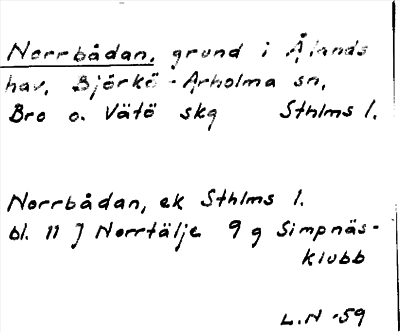 Norrbådan, grund i Ålands
hav, Björkö-Arholma sn,
Bro o. Vätö skg Sthlms l.
Norrbådan, ek Sthlms l.
bl. 11 J Norrtälje 9 g Simpnäs-
klubb
L.N -59